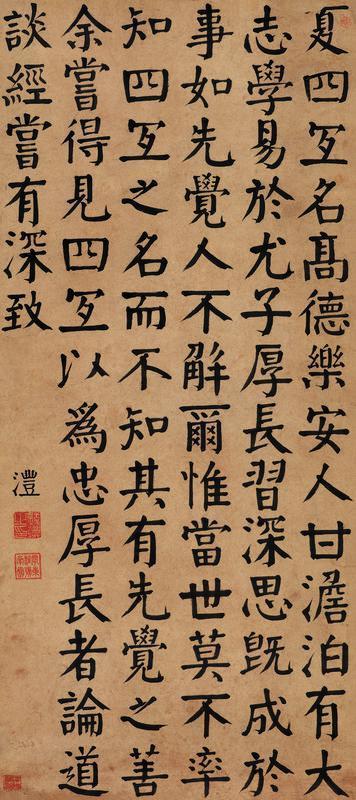 夏四互名髙德樂安人甘澹泊有大
志學易於尤子厚長習深思既成於
事如先覺人不解爾惟當世莫不率
知四互之名而不知其有先覺之善
余嘗得見四互以爲忠厚長者論道
談經嘗有深致
澧